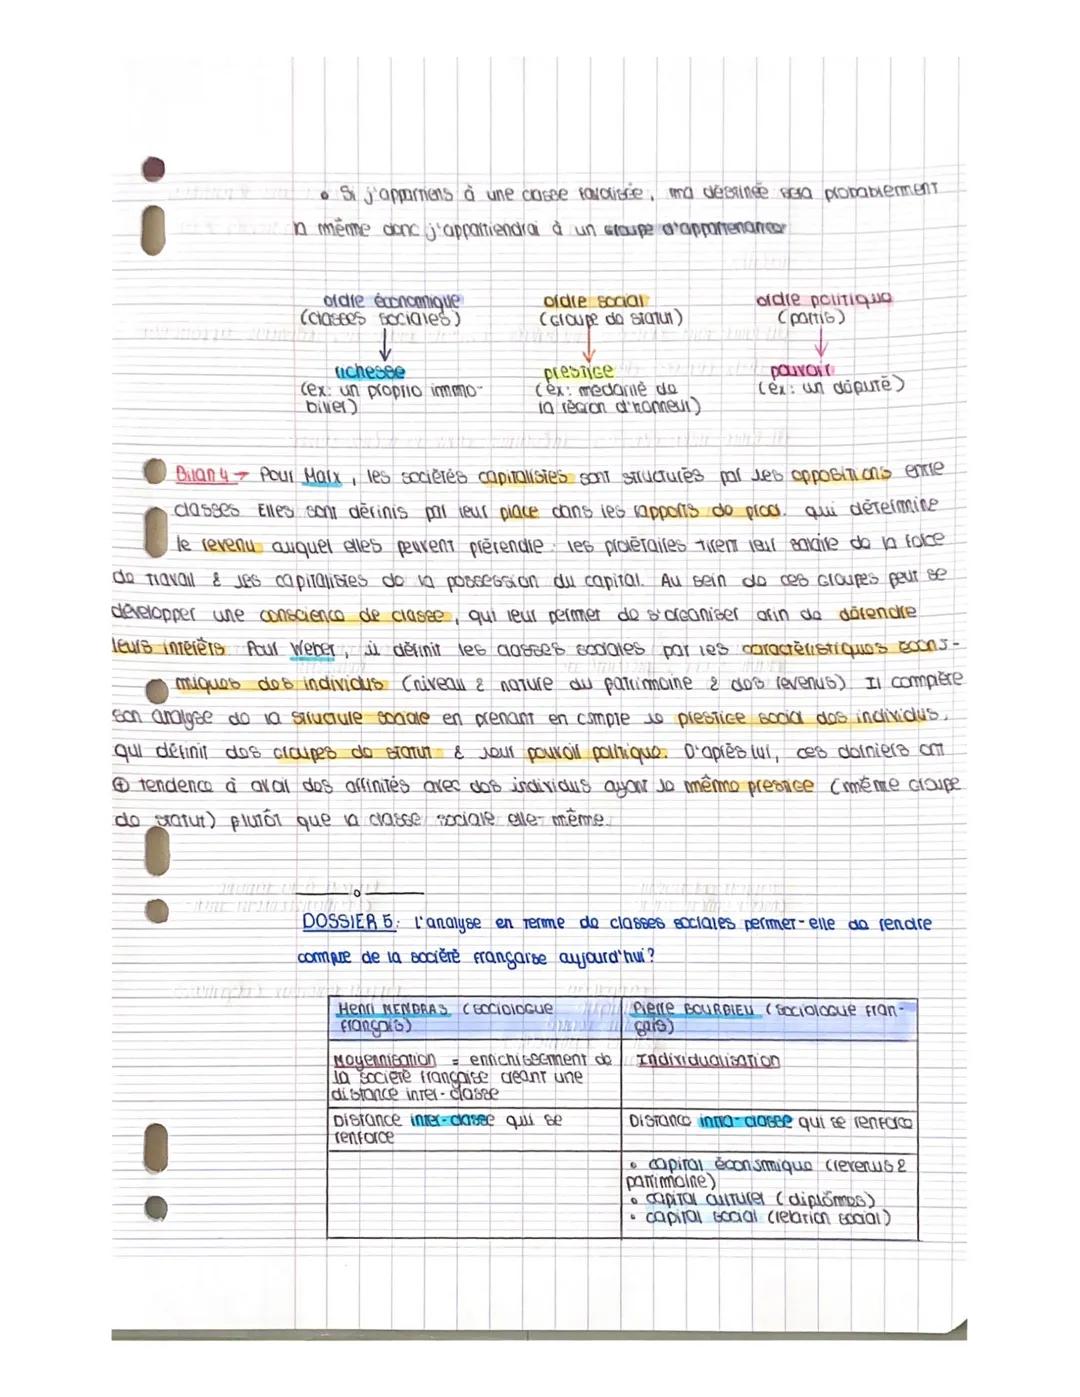 • Si j'appartiens à une classe favorisée, ma destinée sera probablement
la même donc j'appartiendrai à un groupe d'appartenance
ordre économique
(classes sociales)
↓
richesse
(ex: un proprio immo-
bilier)
ordre social
(Groupe de statut)
↓
prestige
(ex: médaillé de
la légion d'honneur)
ordre politique
(partis)
↓
pouvoir
(ex: un député)
Bilan 4 → Pour Marx, les sociétés capitalistes sont structurés par les oppositions entre
classes Elles sont définis par leur place dans les rapports de prod. qui détermine
le revenu auquel elles peuvent prétendre: les prolétaires tirent leur salaire de la force
de travail & les capitalistes de la possession du capital. Au sein de ces Groupes peut se
développer une conscience de classe, qui leur permet de s'organiser afin de défendre
leurs intérêts Pour Weber, il définit les classes sociales par les caractéristiques écono-
miques des individus (niveau & nature du patrimoine & des revenus) Il complète
son analyse de la structure sociale en prenant en compte le prestige social des individus,
qui définit des groupes de statut & leur pouvoir politique. D'après lui, ces derniers ont
⊕ tendence à avoir des affinités avec des individus ayant le même prestige (même Groupe
de statut) plutôt que la classe sociale elle-même.
DOSSIER 5: L'analyse en terme de classes sociales permet-elle de rendre
compte de la société française aujourd'hui?
Henri MENDRAS (sociologue
français)
Pierre BOURDIEU (sociologue fran-
çais)
Moyennisation = enrichissement de
la société française créant une
distance inter-classe
Individualisation
Distance inter-classe qui se
renforce
Distance intra-classe qui se renforce
• capital économique (revenus &
patrimoine)
• capital culturel (diplômes)
• capital social (relation social)